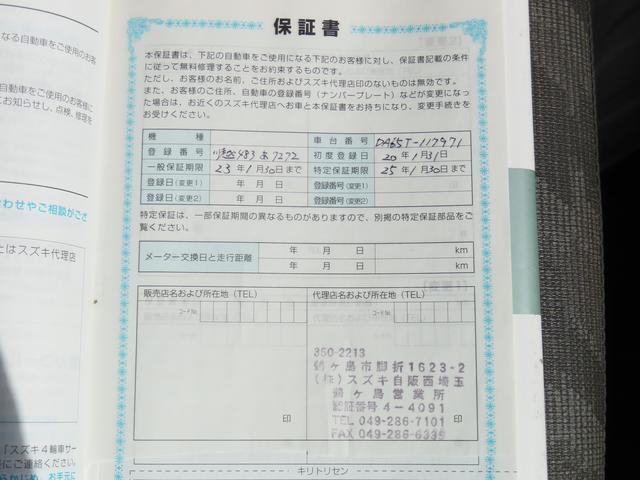 保証書
本保証書は、下記の自動車をご使用になる下記のお客様に対し、保証書記載の条件
に従って無料修理することをお約束するものです。
ただし、お客様のお名前、ご住所およびスズキ代理店印のないものは無効です。
また、お客様のご住所、自動車の登録番号（ナンバープレート）などが変更になっ
た場合は、お近くのスズキ代理店へお車と本保証書をお持ちになり、変更手続きを
お受けください。
機種 車台番号 DA65T-117971
登録番号 川越483 7272 初度登録日 20年1月31日
一般保証期限 23年1月30日まで 特定保証期限 25年1月30日まで
登録日(変更1) 年 月 日 登録番号(変更1)
登録日(変更2) 年 月 日 登録番号(変更2)
特定保証は、一部保証期間の異なるものがありますので、別掲の特定保証部品をご
覧ください。
メーター交換日と走行距離 年 月 日 km
年 月 日 km
販売店名および所在地（TEL） 代理店名および所在地（TEL）
コードNo. コードNo.
350-2213
鶴ヶ島市脚折1623-2
(株)スズキ自販西埼玉
鶴ヶ島営業所
認証番号4-4091
TEL 049-286-7101
FAX 049-286-6339
印 印
キリトリセン
なる自動車をご使用のお客
自動車をご使用のお客様に
お知らせし、点検、修理を
わせやご相談がござ
はスズキ代理店
「スズキ4輪車サー
にご連絡ください。